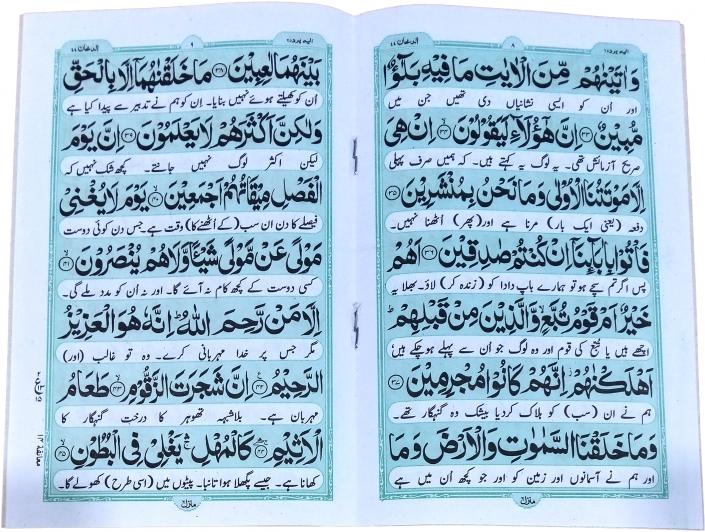 الدخان ٤٤
٨
الیہ یرد ٢٥
وَاٰتَیْنٰهُمْ مِّنَ الْاٰیٰتِ مَا فِیْهِ بَلٰٓؤٌا
اور ان کو ایسی نشانیاں دی تھیں جن میں
مُّبِیْنٌ ﴿٣٣﴾ اِنَّ هٰۤؤُلَآءِ لَیَقُوْلُوْنَ ﴿٣٤﴾ اِنْ هِیَ
صریح آزمائش تھی۔ یہ لوگ یہ کہتے ہیں۔ کہ ہمیں صرف پہلی
اِلَّا مَوْتَتُنَا الْاُوْلٰی وَمَا نَحْنُ بِمُنْشَرِیْنَ ﴿٣٥﴾
دفعہ (یعنی ایک بار) مرنا ہے اور (پھر) اُٹھنا نہیں۔
فَاْتُوْا بِاٰبَآئِنَاۤ اِنْ كُنْتُمْ صٰدِقِیْنَ ﴿٣٦﴾ اَهُمْ
پس اگر تم سچے ہو تو ہمارے باپ دادا کو (زندہ کر) لاؤ۔ بھلا یہ
خَیْرٌ اَمْ قَوْمُ تُبَّعٍ وَّالَّذِیْنَ مِنْ قَبْلِهِمْ ط
اچھے ہیں یا تُبّع کی قوم اور وہ لوگ جو اُن سے پہلے ہو چکے ہیں؟
اَهْلَكْنٰهُمْ اِنَّهُمْ كَانُوْا مُجْرِمِیْنَ ﴿٣٧﴾
ہم نے ان (سب) کو ہلاک کردیا بیشک وہ گنہگار تھے۔
وَمَا خَلَقْنَا السَّمٰوٰتِ وَالْاَرْضَ وَمَا
اور ہم نے آسمانوں اور زمین کو اور جو کچھ اُن میں ہے
منزل ٦
الدخان ٤٤
٩
الیہ یرد ٢٥
بَیْنَهُمَا لٰعِبِیْنَ ﴿٣٨﴾ مَا خَلَقْنٰهُمَاۤ اِلَّا بِالْحَقِّ
اُن کو کھیلتے ہوئے نہیں بنایا۔ اِن کو ہم نے تدبیر سے پیدا کیا ہے
وَلٰكِنَّ اَكْثَرَهُمْ لَا یَعْلَمُوْنَ ﴿٣٩﴾ اِنَّ یَوْمَ
لیکن اکثر لوگ نہیں جانتے۔ کچھ شک نہیں کہ
الْفَصْلِ مِیْقَاتُهُمْ اَجْمَعِیْنَ ﴿٤٠﴾ یَوْمَ لَا یُغْنِیْ
فیصلے کا دن ان سب (کے اُٹھنے کا) وقت ہے جس دن کوئی دوست
مَوْلًی عَنْ مَّوْلًی شَیْئًا وَّلَا هُمْ یُنْصَرُوْنَ ﴿٤١﴾
کسی دوست کے کچھ کام نہ آئے گا۔ اور نہ اُن کو مدد ملے گی۔
اِلَّا مَنْ رَّحِمَ اللّٰهُ ط اِنَّهٗ هُوَ الْعَزِیْزُ
مگر جس پر خدا مہربانی کرے۔ وہ تو غالب (اور)
الرَّحِیْمُ ﴿٤٢﴾ اِنَّ شَجَرَتَ الزَّقُّوْمِ ﴿٤٣﴾ طَعَامُ
مہربان ہے۔ بلاشبہ تھوہر کا درخت گنہگار کا
الْاَثِیْمِ ﴿٤٤﴾ كَالْمُهْلِ یَغْلِیْ فِی الْبُطُوْنِ ﴿٤٥﴾
کھانا ہے۔ جیسے پگھلا ہوا تانبا۔ پیٹوں میں (اسی طرح) کھولے گا۔
منزل ٦
معانقۃ ١٣